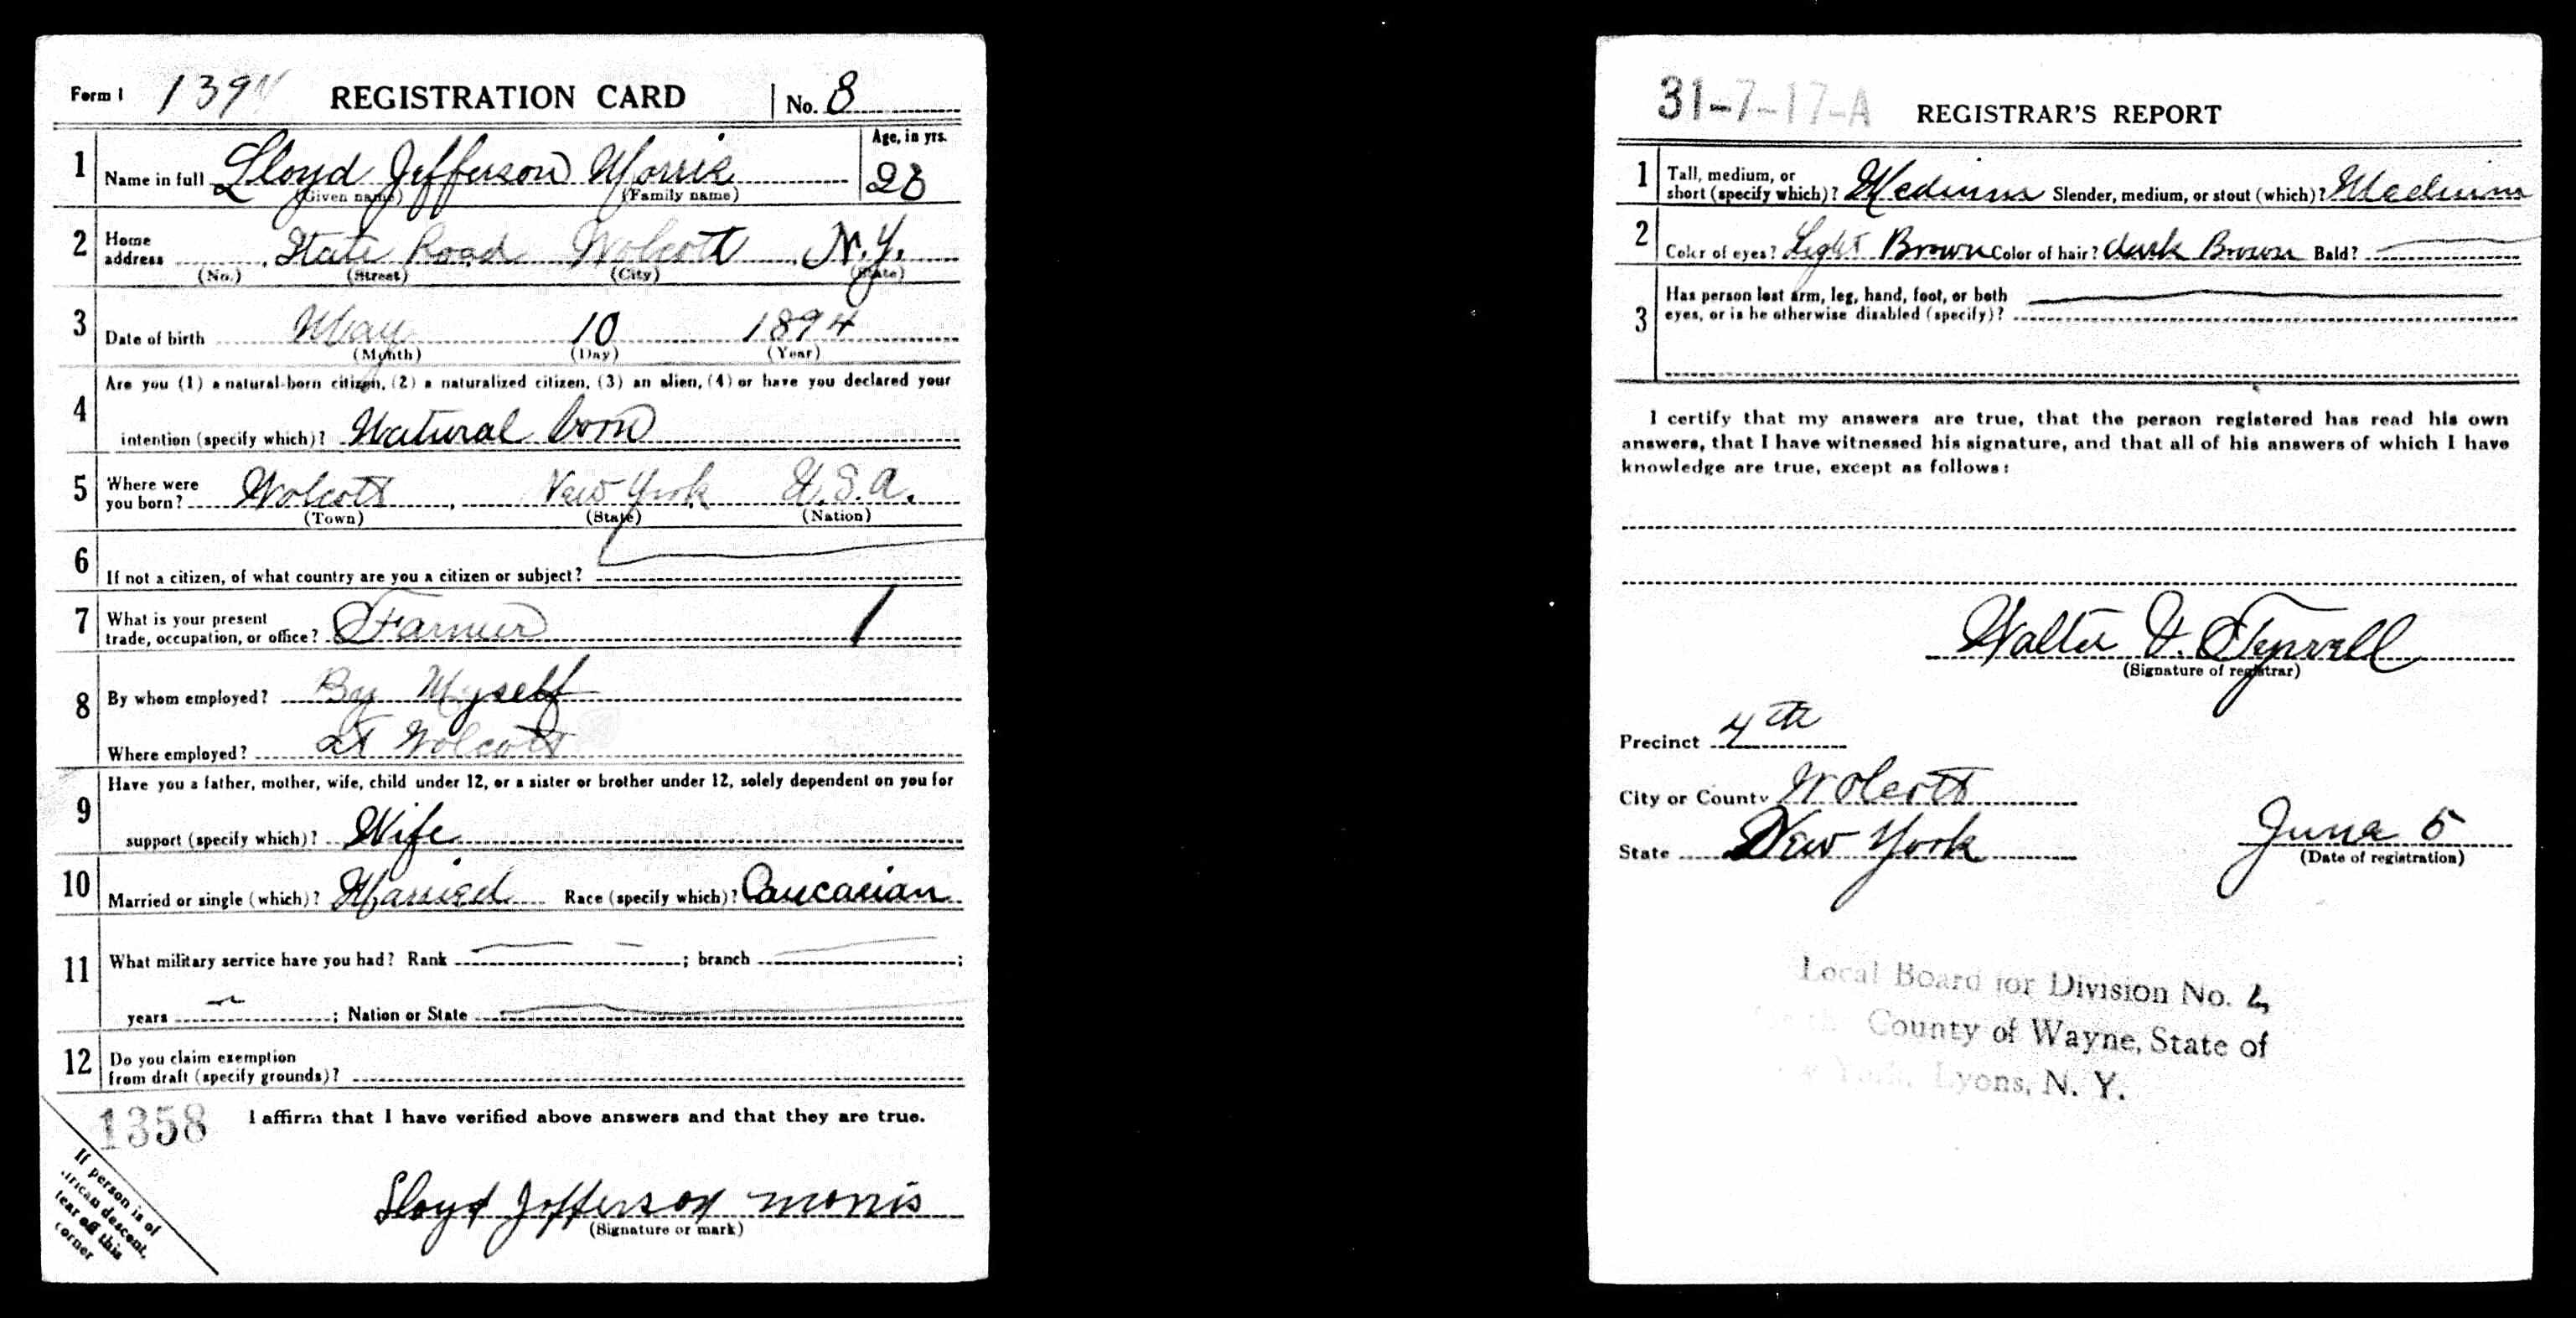 Form 1 139 REGISTRATION CARD No. 8
1 Name in full Lloyd Jefferson Morris Age, in yrs.
(Given name) (Family name)
2 Home address State Road Wolcott N.Y.
(No.) (Street) (City) (State)
3 Date of birth May 10 1894
(Month) (Day) (Year)
4 Are you (1) a natural-born citizen, (2) a naturalized citizen, (3) an alien, (4) or have you declared your
intention (specify which)? Natural born
5 Where were you born? Wolcott, New York U.S.A.
(Town) (State) (Nation)
6 If not a citizen, of what country are you a citizen or subject?
7 What is your present
trade, occupation, or office? Farmer 1
8 By whom employed? By Myself
Where employed? At Wolcott
9 Have you a father, mother, wife, child under 12, or a sister or brother under 12, solely dependent on you for
support (specify which)? Wife
10 Married or single (which)? Married Race (specify which)? Caucasian
11 What military service have you had? Rank ; branch ;
years ; Nation or State
12 Do you claim exemption
from draft (specify grounds)?
1358 I affirm that I have verified above answers and that they are true.
Lloyd Jefferson Morris
(Signature or mark)
If person is of
African descent,
tear off this
corner
31-7-17-A REGISTRAR'S REPORT
1 Tall, medium, or
short (specify which)? Medium Slender, medium, or stout (which)? Medium
2 Color of eyes? Light Brown Color of hair? dark Brown Bald?
3 Has person lost arm, leg, hand, foot, or both
eyes, or is he otherwise disabled (specify)?
I certify that my answers are true, that the person registered has read his own
answers, that I have witnessed his signature, and that all of his answers of which I have
knowledge are true, except as follows:
Walter V. Tyrrell
(Signature of registrar)
Precinct 4th
City or County Wolcott
State New York June 5
(Date of registration)
Local Board for Division No.
County of Wayne, State of
New York, Lyons, N. Y.